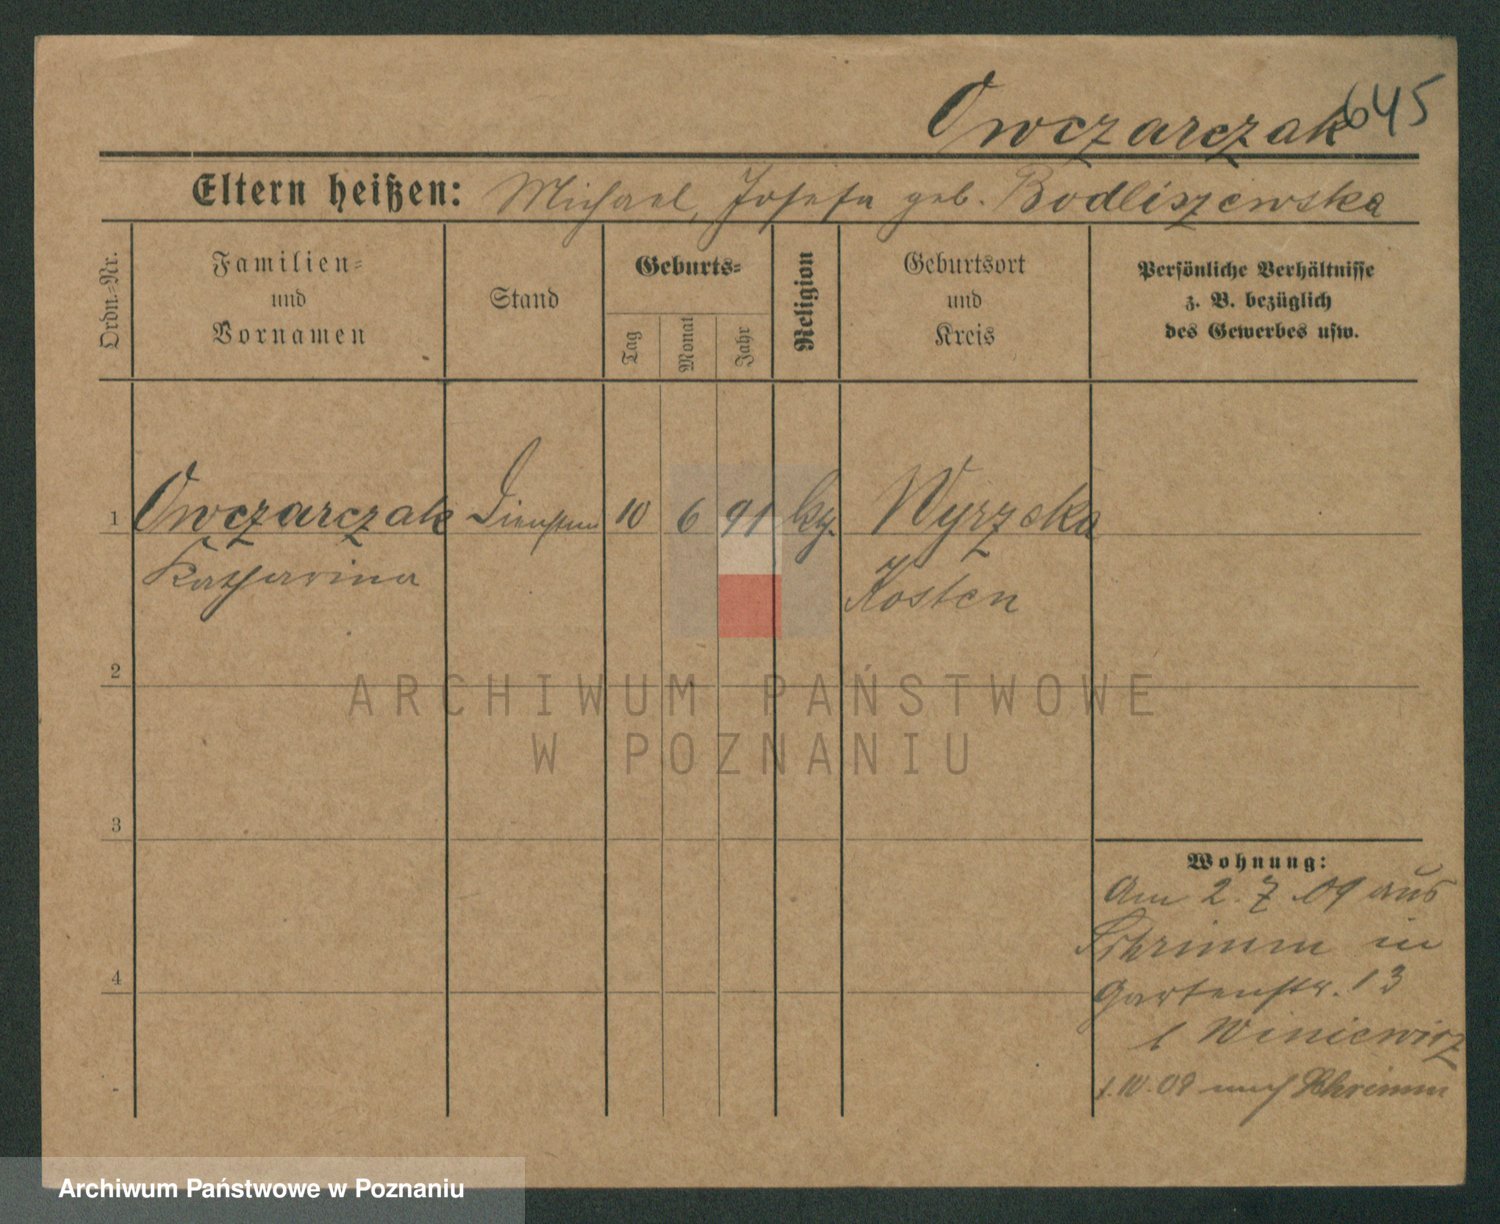 645
Owczarczak
Eltern heißen: Michael, Josefa geb. Bodliszewska
Ordn.-Nr.
Familien-
und
Vornamen
Stand
Geburts-
Tag
Monat
Jahr
Religion
Geburtsort
und
Kreis
Persönliche Verhältnisse
z. B. bezüglich
des Gewerbes usw.
1 Owczarczak 10 6 91 Wyrzeka
Katharina Kosten
2
3
4
Wohnung:
Am 2.7.09 aus
Schrimm in
Gartenstr. 13
b Winiewicz
1.10.09 nach Schrimm
ARCHIWUM PAŃSTWOWE
W POZNANIU
Archiwum Państwowe w Poznaniu